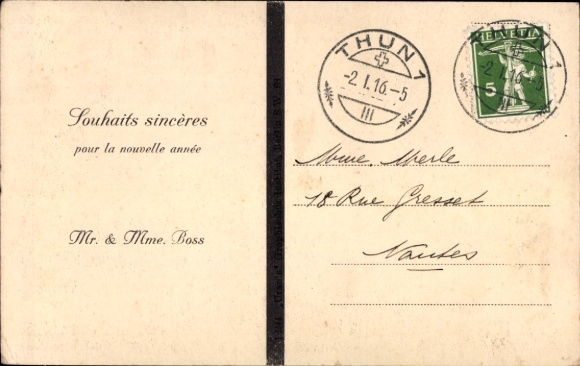 Souhaits sincères
pour la nouvelle année
Mr. & Mme. Boss
THUN 1
-2.I.16.-5
III
HELVETIA
5
THUN 1
-2.I.16.-5
III
Mme. Merle
18 Rue Gresset
Nantes